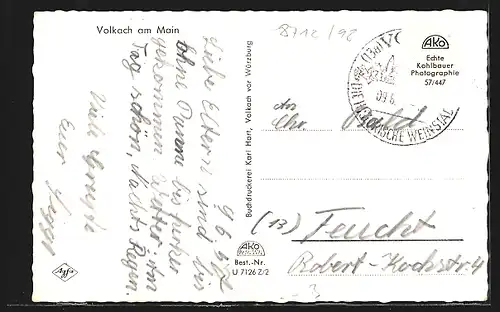 Volkach am Main
8712/92
9.6.57
Liebe Eltern! sind bis
ohne Panne bis hierher
gekommen. Wetter am
Tag schön, Nachts Regen.
Viele Grüße
Euer
Agfa
Buchdruckerei Karl Hart, Volkach vor Würzburg
AKO
Best.-Nr.
U 7126 Z/2
AKO
Echte
Kohlbauer
Photographie
57/447
09.6.
DIE FRÄNKISCHE WEINSTADT
An
(13) Feucht
Robert-Kochstr. 4
3